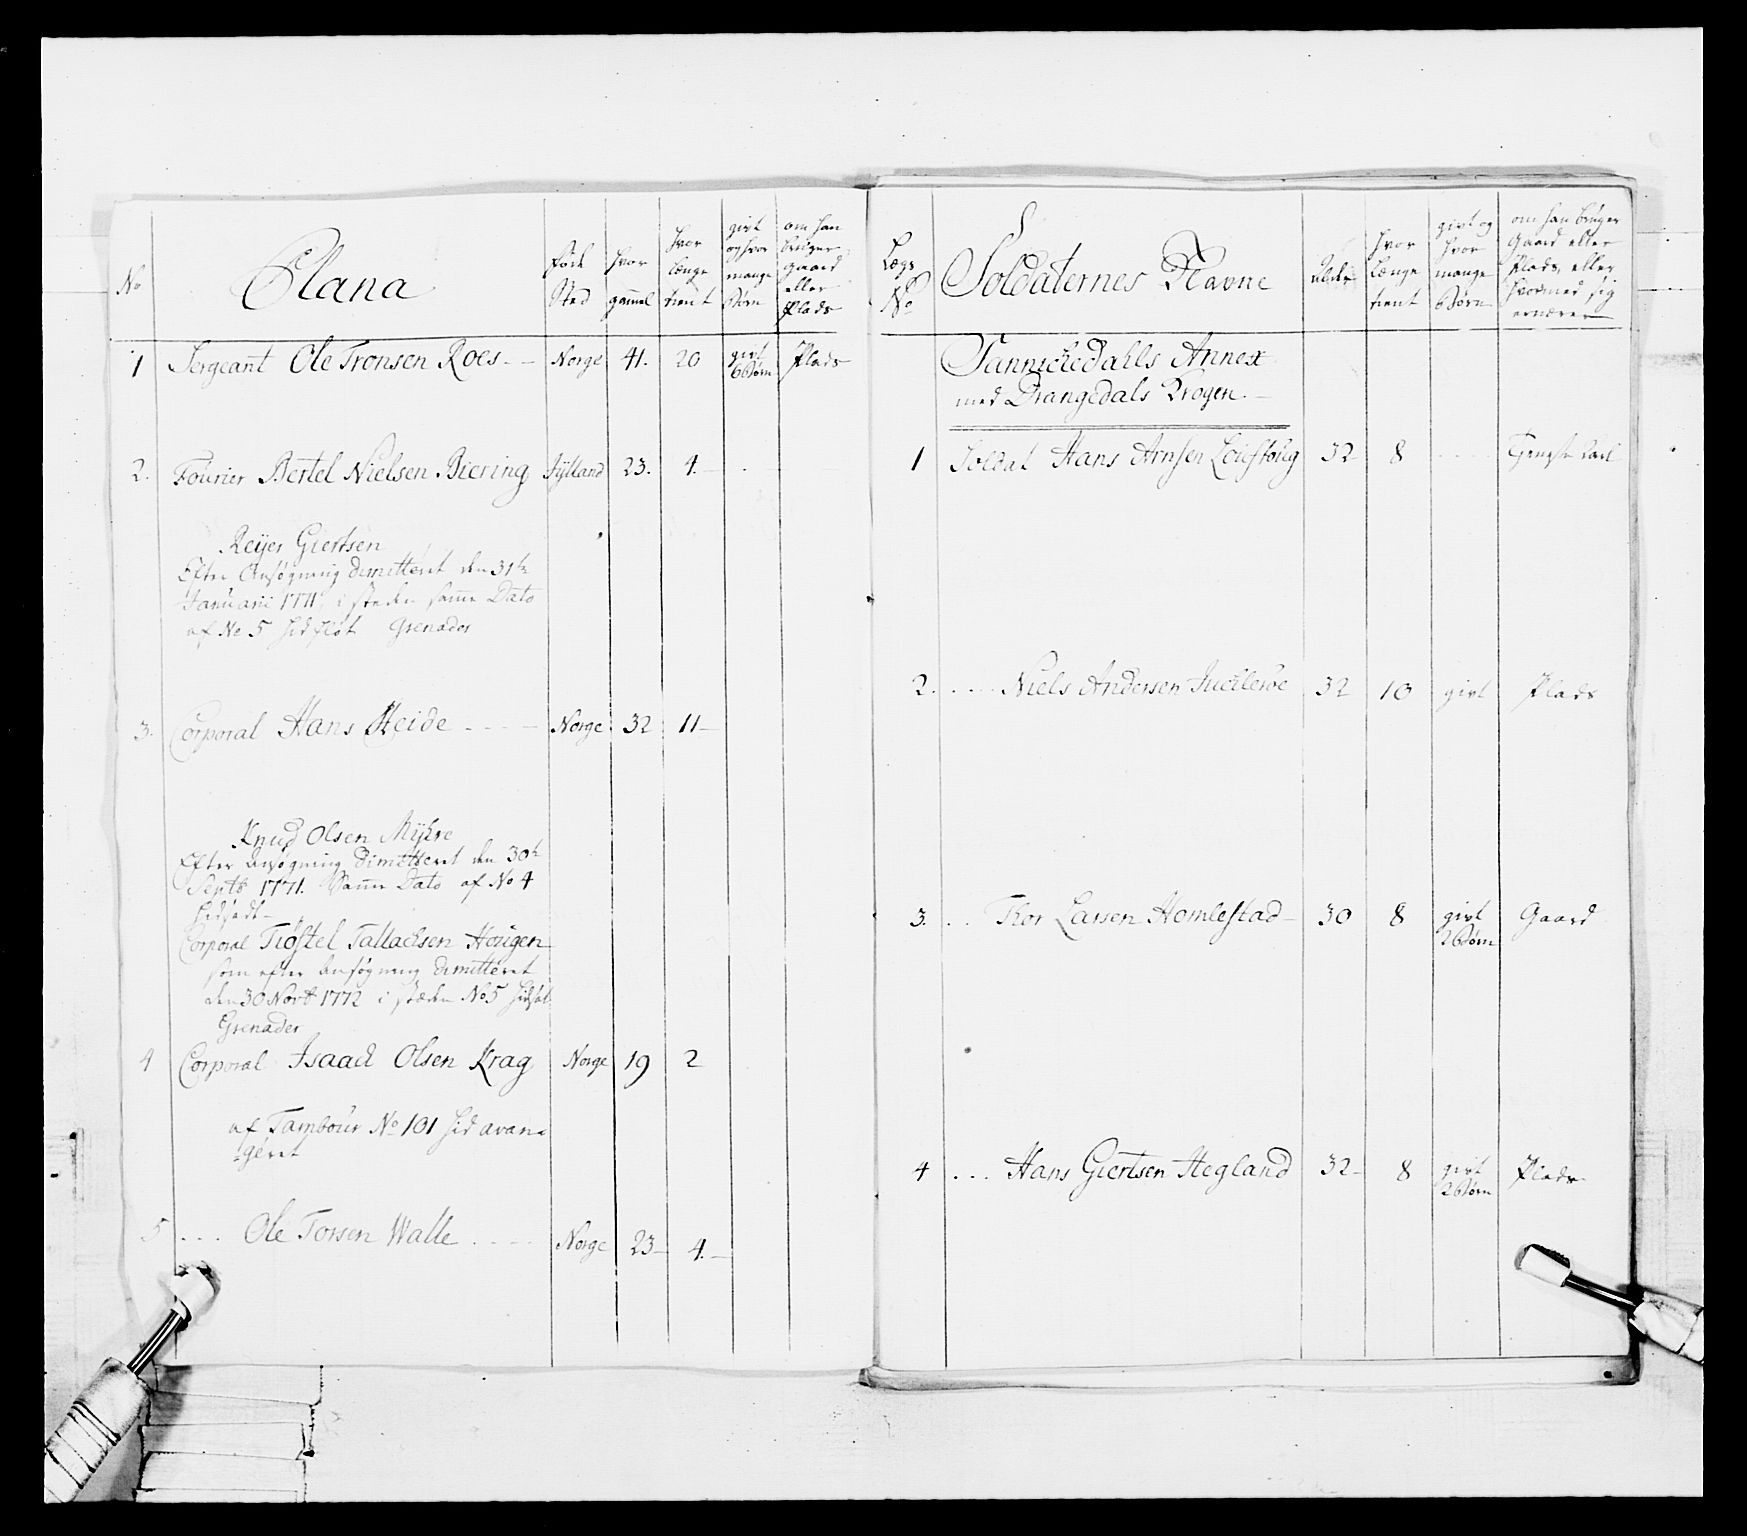 No
Etana
føde Sted
hvor gammel
hvor længe tient
givt og hvor mange Børn
om han bruger gaard eller Plads
1 Sergeant Ole Tronsen Roes Norge 41. 20 givt 6 Børn Plads
2. Fourier Bertel Nielsen Biering Jylland 23. 4.
Reijer Giertsen
Efter Ansøgning dimitteret den 31te
Januarii 1771, i steden samme Dato
af No 5 hid fløt Grenader
3. Corporal Hans Heide Norge 32 11
Knud Olsen Myhre
Efter Ansøgning Dimitteret den 30te
Septb 1771. Samme Dato af No 4
hidsadt
Corporal Tiøstel Tallachsen Hougen
som efter Ansøgning dimitteret
den 30 Novb 1772 i stæden No 5 hidsat
Grenader
4 Corporal Isaach Olsen Krag Norge 19 2
af Tambour No 101 hid avan
geret
5 ... Ole Torsen Walle Norge 23 4.
Lægs No
Soldaternes Navne
Alder
hvor Længe tient
givt og hvor mange Børn
om han bruger Gaard eller Plads, eller hvormed sig ernærer
Sannickedahls Annex
med Drangedals Krogen.
1 Soldat Hans Arnsen 32 8
2. Niels Andersen 32 10 givt Plads
3. Thor Larsen Homlestad 30 8 givt 2 Børn Gaard
4 ... Hans Giertsen Hegland 32 8 givt 2 Børn Plads